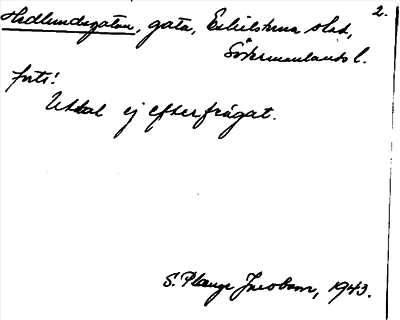 2.
Hedlundsgatan, gata, Eskilstuna stad,
Södermanlands l.
forts!
Uttal ej efterfrågat.
S. Plaenge Jacobson, 1943.